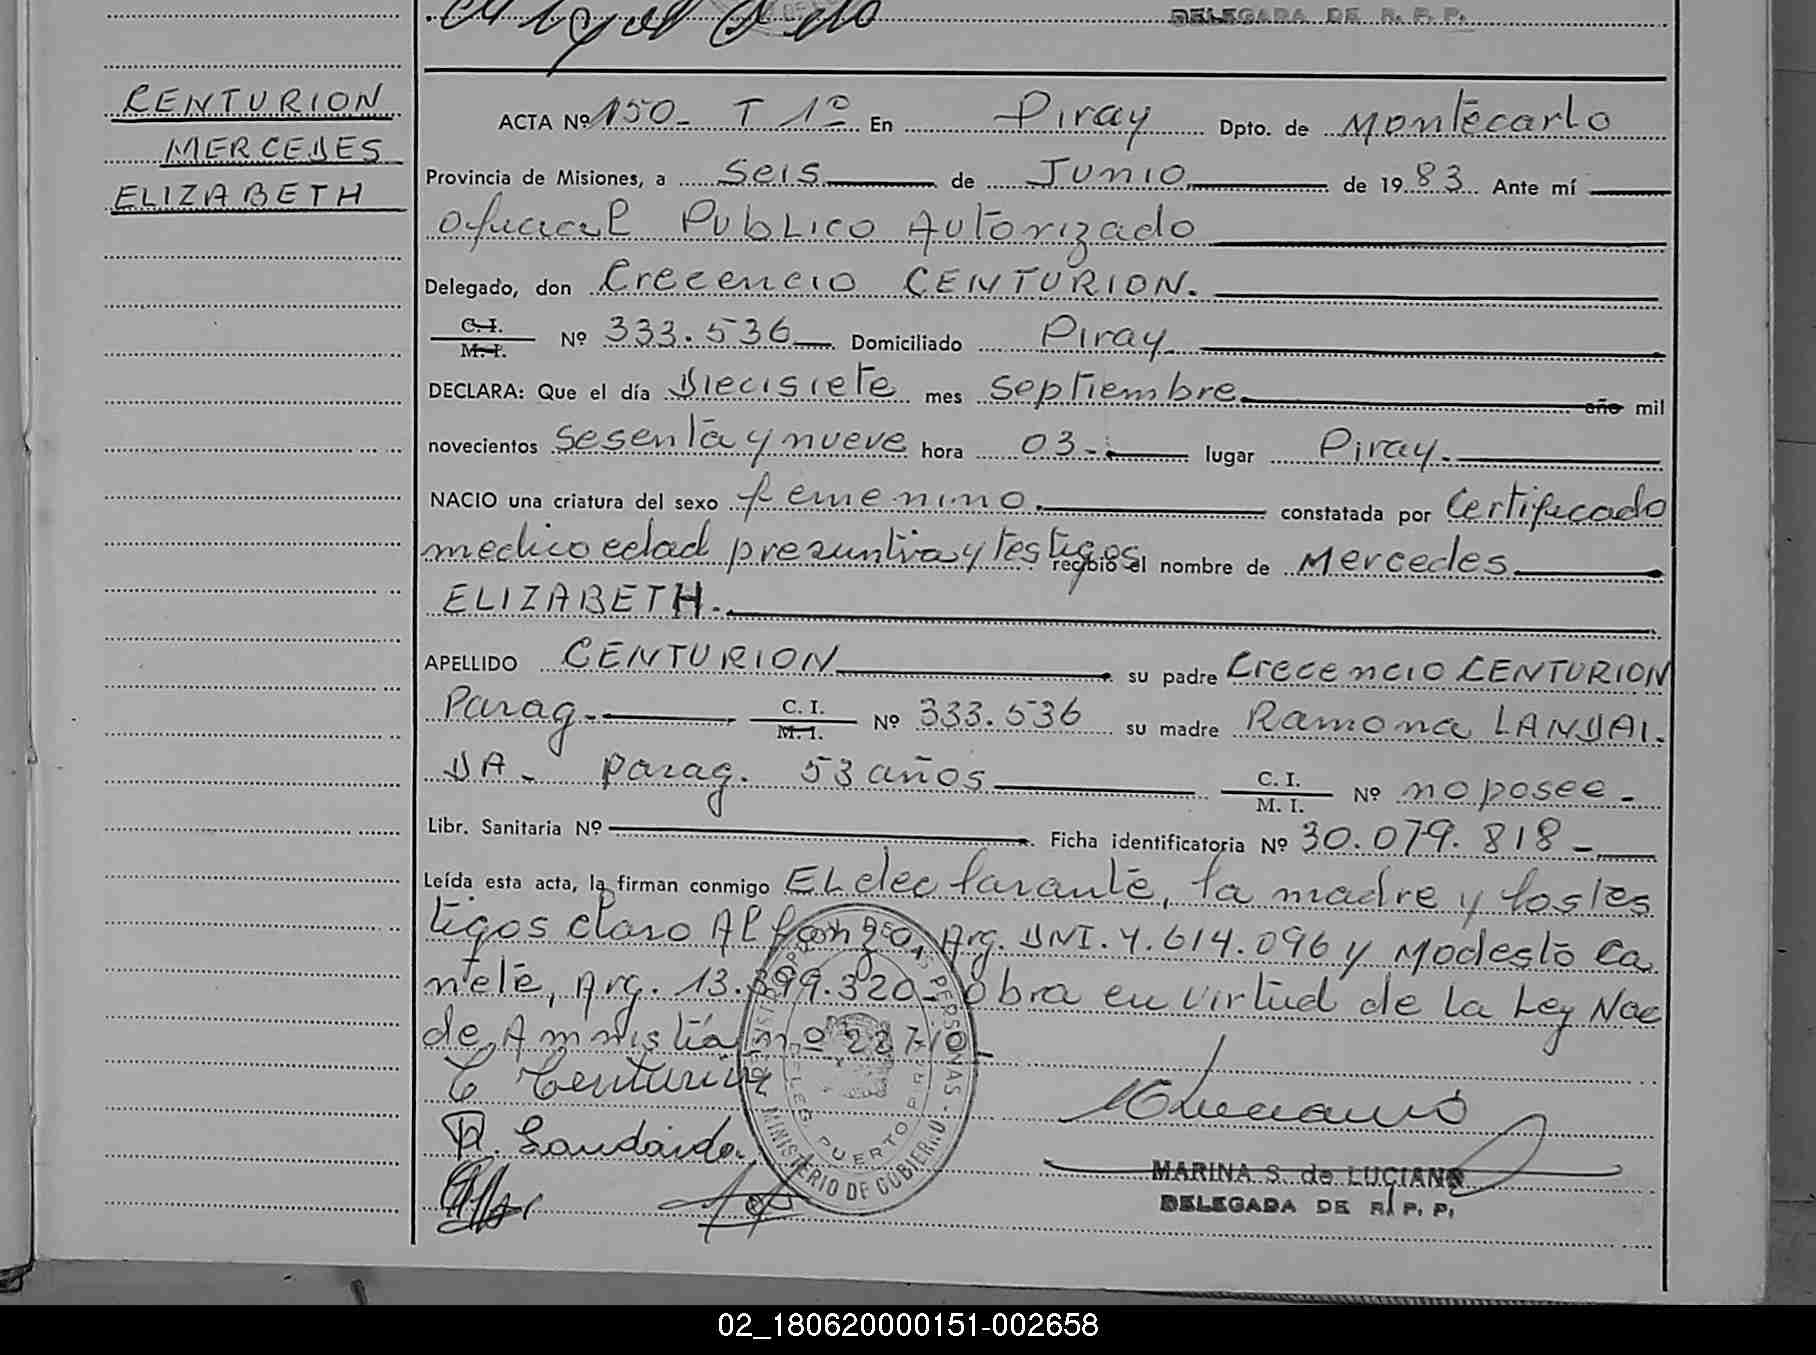 DELEGADA DE R. P. P.
CENTURION
MERCEDES
ELIZABETH
ACTA Nº 150- T 1º En Piray Dpto. de Montecarlo
Provincia de Misiones, a seis de Junio de 1983 Ante mí
Oficial Publico Autorizado
Delegado, don Crecencio CENTURION.
C. I. / M. I. Nº 333.536 Domiciliado Piray
DECLARA: Que el día Diecisiete mes septiembre año mil
novecientos sesenta y nueve hora 03- lugar Piray.
NACIO una criatura del sexo femenino. constatada por Certificado
medico edad presuntiva y testigos recibió el nombre de Mercedes
ELIZABETH.
APELLIDO CENTURION su padre Crecencio CENTURION
Parag. C. I. / M. I. Nº 333.536 su madre Ramona LANDAI-
DA- parag. 53 años C. I. / M. I. Nº no posee-
Libr. Sanitaria Nº Ficha identificatoria Nº 30.079.818-
Leída esta acta, la firman conmigo EL declarante, la madre y los tes
tigos claro Alfonzo, Arg. DNI. 4.614.096 y Modesto Ca
ñete, Arg. 13.399.320- Obra en virtud de la Ley Nac
de Amnistía nº 22710-
C Centurion
R. Landaida.
MINISTERIO DE GOBIERNO
PUERTO PIRAY
MARINA S. de LUCIANO
DELEGADA DE R. P. P.
02_180620000151-002658